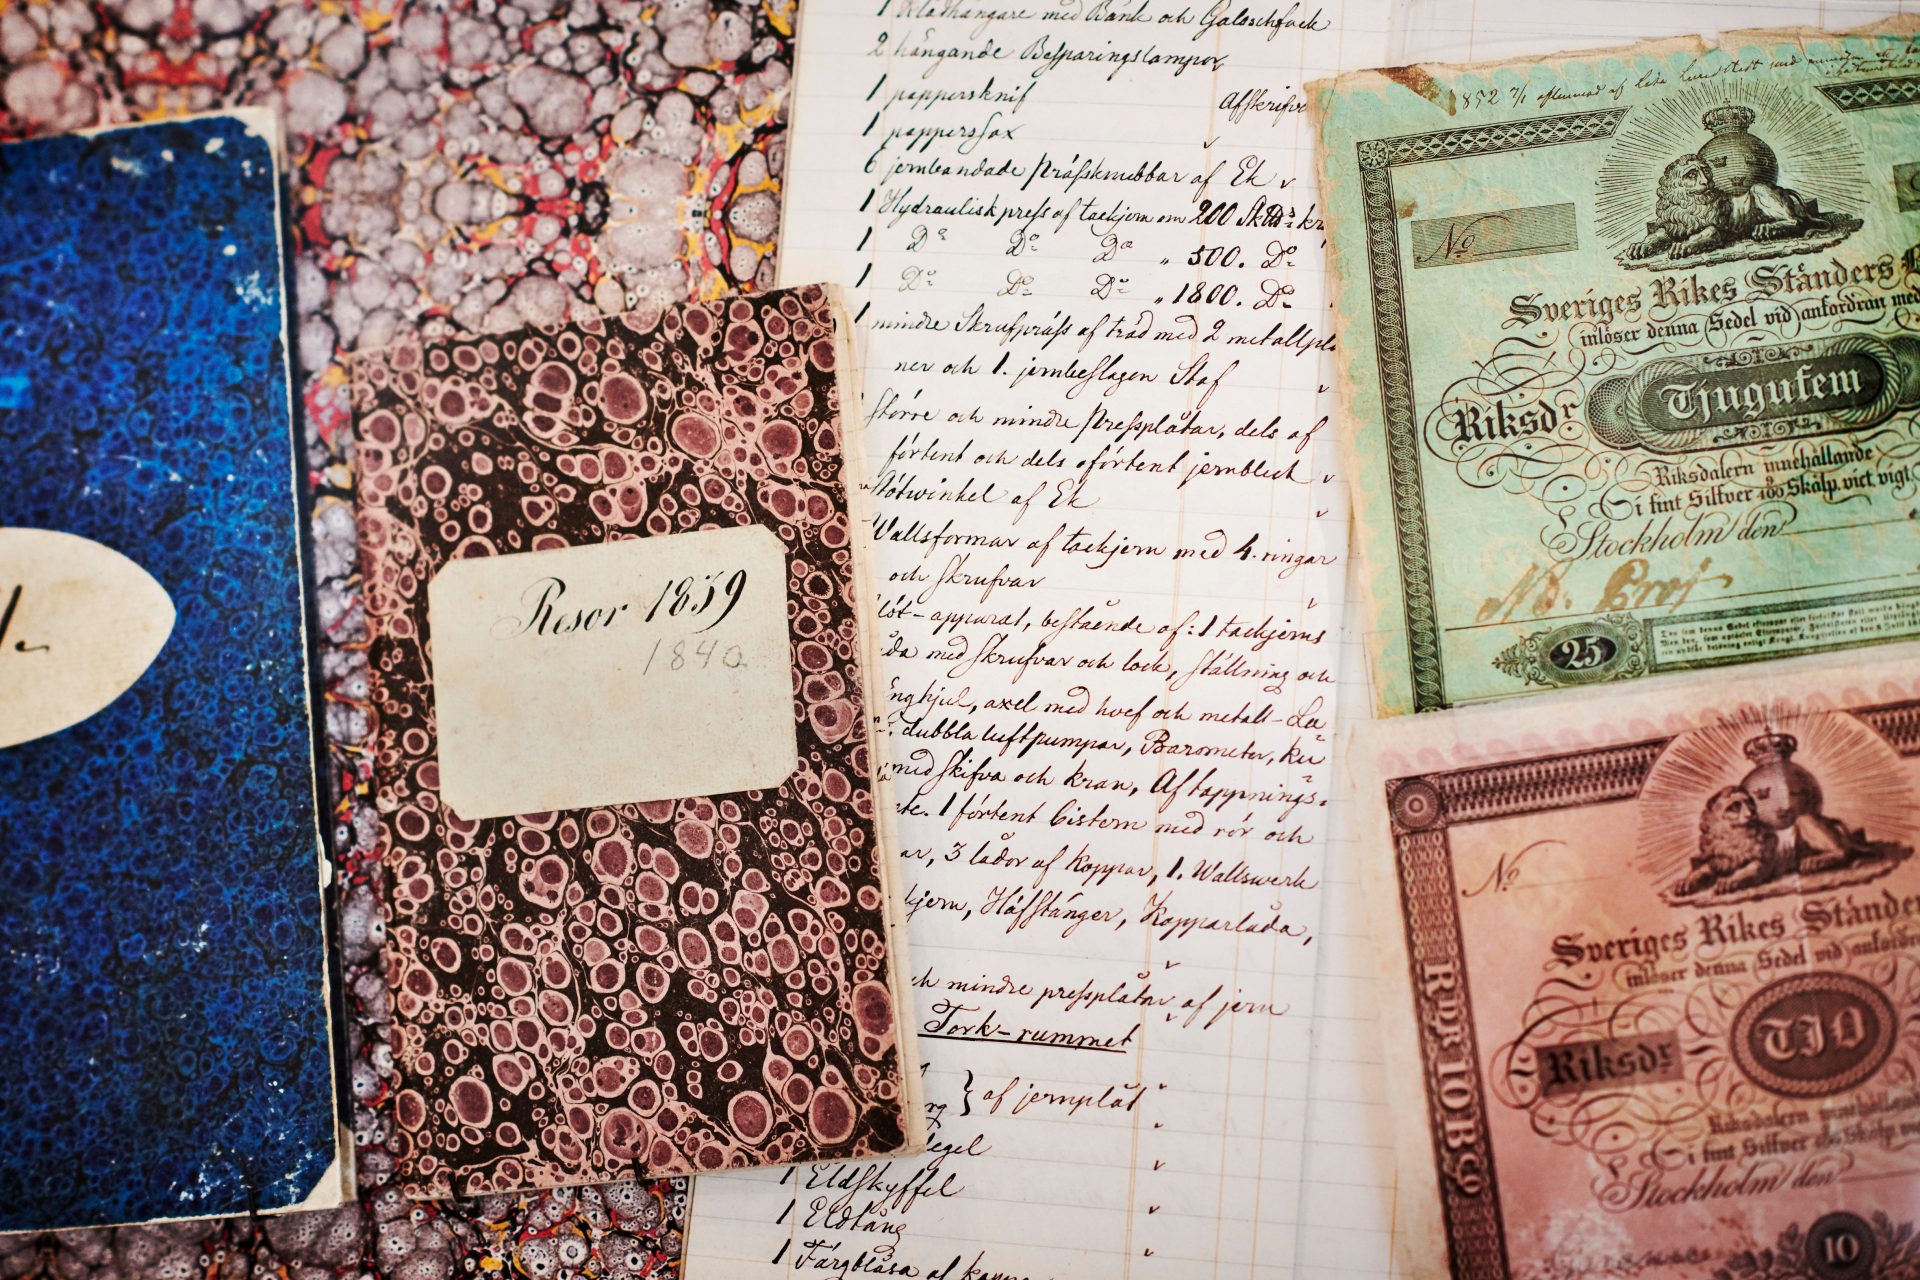 Resor 1839
1840
1 Klädhängare med Bänk och Galoschfack
2 hängande Besparingslampor
1 pappersknif
Afskrifv
1 papperssax
6 jernbandade Prässkubbar af Ek
1 Hydraulisk press af tackjern om 200 Sk℔s kr
1 Do Do Do " 500. Do
1 Do Do Do " 1800. Do
1 mindre Skrufpräss af träd med 2 metallpla
ner och 1. jernbeslagen Staf
större och mindre Pressplåtar, dels af
förtent och dels oförtent jernbleck
Stötwinkel af Ek
Wallsformar af tackjern med 4. ringar
och skrufvar
apparat, bestående af: 1 tackjerns
da med skrufvar och lock, ställning och
nghjul, axel med hvef och metall-La
dubbla luftpumpar, Barometer, Ku
med skifva och kran, Aftappnings-
1 förtent Cistern med rör och
ar, 3 lådor af koppar, 1. Wallswerk
kjern, Häfstänger, Kopparlåda,
ch mindre pressplåtar af jern
Tork-rummet
af jernplåt
egel
1 Eldskyffel
1 Eldtång
1 Färgblåsa af koppa
1852
No
Sveriges Rikes Ständers B
inlöser denna Sedel vid anfordran med
Riksdr Tjugufem
Riksdalern innehållande
i fint Silfver Skålp. vict vigt
Stockholm den
No. Proj
25
No
Sveriges Rikes Ständer
inlöser denna Sedel vid anfordra
Riksdr TIO
Riksdalern innehålla
i fint Silfver Skålp. vi
Stockholm den
RDR 10 BCO
10